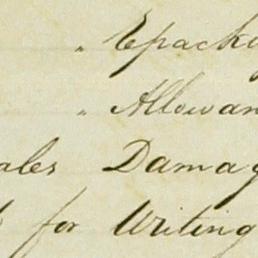 " Repack
" Allowan
ales Damag
for Writing